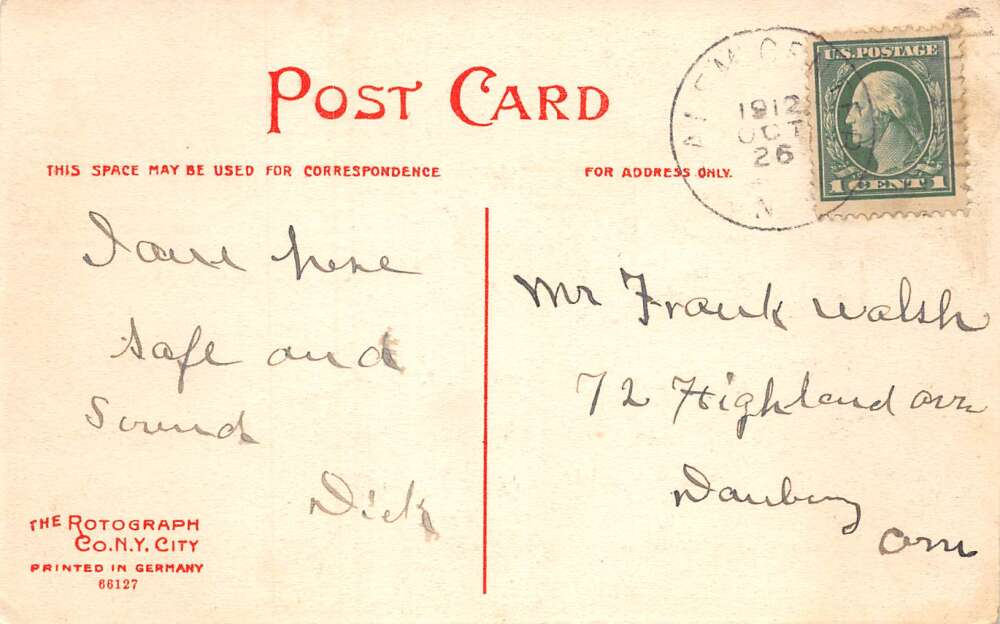 POST CARD
THIS SPACE MAY BE USED FOR CORRESPONDENCE
FOR ADDRESS ONLY.
1912
OCT
26
N
U.S. POSTAGE
1 CENT 1
I am here
safe and
Sound
Dick
Mr Frank Walsh
72 Highland
Danbury
THE ROTOGRAPH
CO. N.Y. CITY
PRINTED IN GERMANY
66127